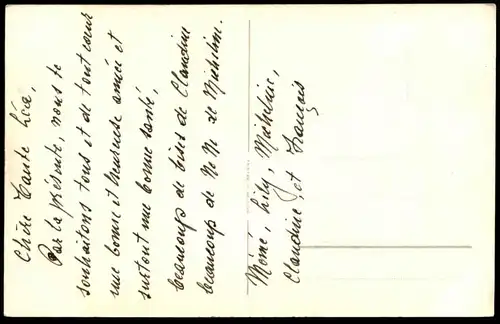 Chère Tante Léa,
Par la présente, nous te
souhaitons tous et de tout cœur
une bonne et heureuse année et
surtout une bonne santé,
beaucoup de bises de Claudine
beaucoup de No No de Micheline.
Mémé, Lily, Micheline,
Claudine et François